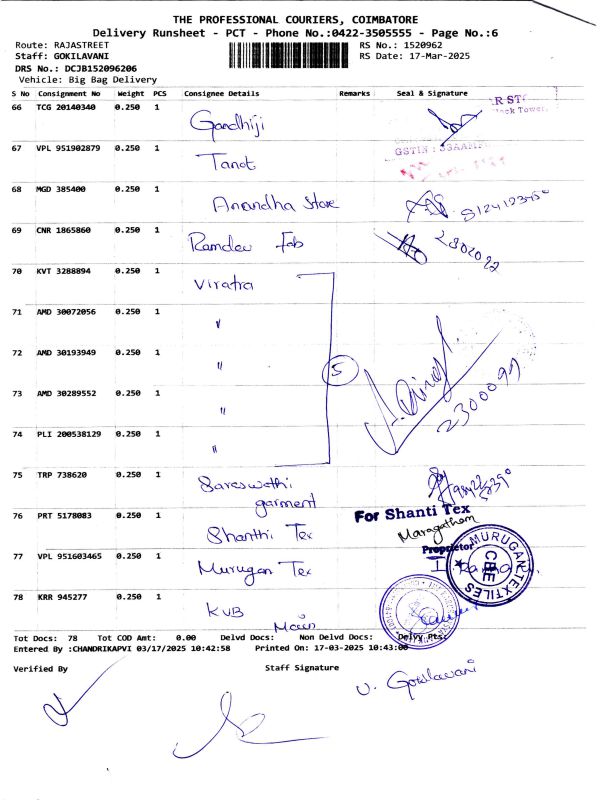 THE PROFESSIONAL COURIERS, COIMBATORE
Delivery Runsheet - PCT - Phone No.:0422-3505555 - Page No.:6
Route: RAJASTREET RS No.: 1520962
Staff: GOKILAVANI RS Date: 17-Mar-2025
DRS No.: DCJB152096206
Vehicle: Big Bag Delivery
S No Consignment No Weight PCS Consignee Details Remarks Seal & Signature
66 TCG 20140340 0.250 1 Gandhiji
67 VPL 951902879 0.250 1 Tanot
GSTIN :
68 MGD 385400 0.250 1 Anandha Store
69 CNR 1865860 0.250 1 Ramdev Fab
70 KVT 3288894 0.250 1 Viratra
71 AMD 30072056 0.250 1 "
72 AMD 30193949 0.250 1 " 5
73 AMD 30289552 0.250 1 "
74 PLI 200538129 0.250 1 "
75 TRP 738620 0.250 1 Sareswathi garment
76 PRT 5178083 0.250 1 Shanthi Tex
For Shanti Tex
Maragatham
Proprietor
77 VPL 951603465 0.250 1 Murugan Tex
MURUGAN TEXTILES
CBE
78 KRR 945277 0.250 1 KVB Main
Tot Docs: 78 Tot COD Amt: 0.00 Delvd Docs: Non Delvd Docs: Delvy Pts:
Entered By :CHANDRIKAPVI 03/17/2025 10:42:58 Printed On: 17-03-2025 10:43:00
Verified By Staff Signature
V. Gokilavani